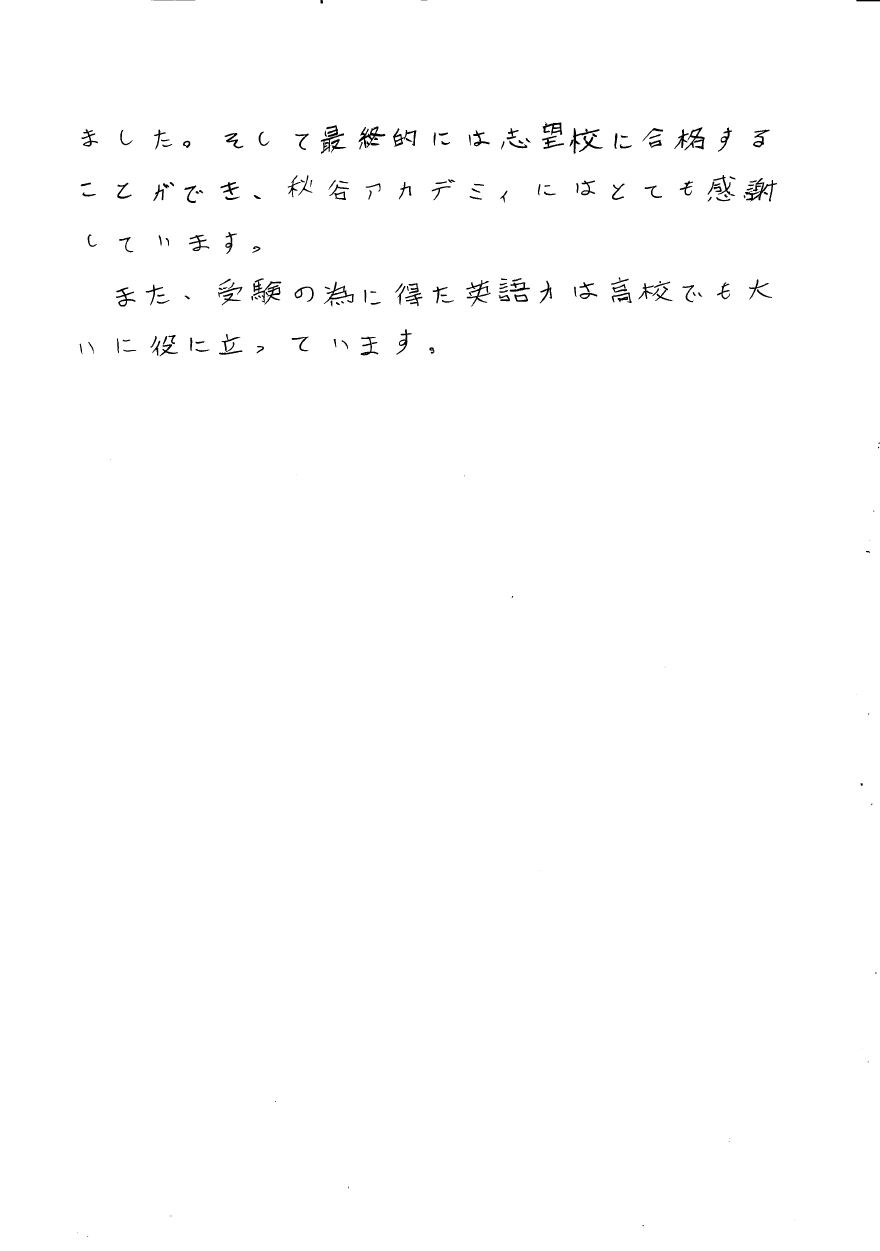 ました。そして最終的には志望校に合格する
ことができ、秋谷アカデミィにはとても感謝
しています。
また、受験の為に得た英語力は高校でも大
いに役に立っています。